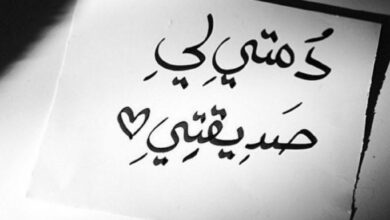 دُمتي لِيِ
صَدِيقتِيِ ♡